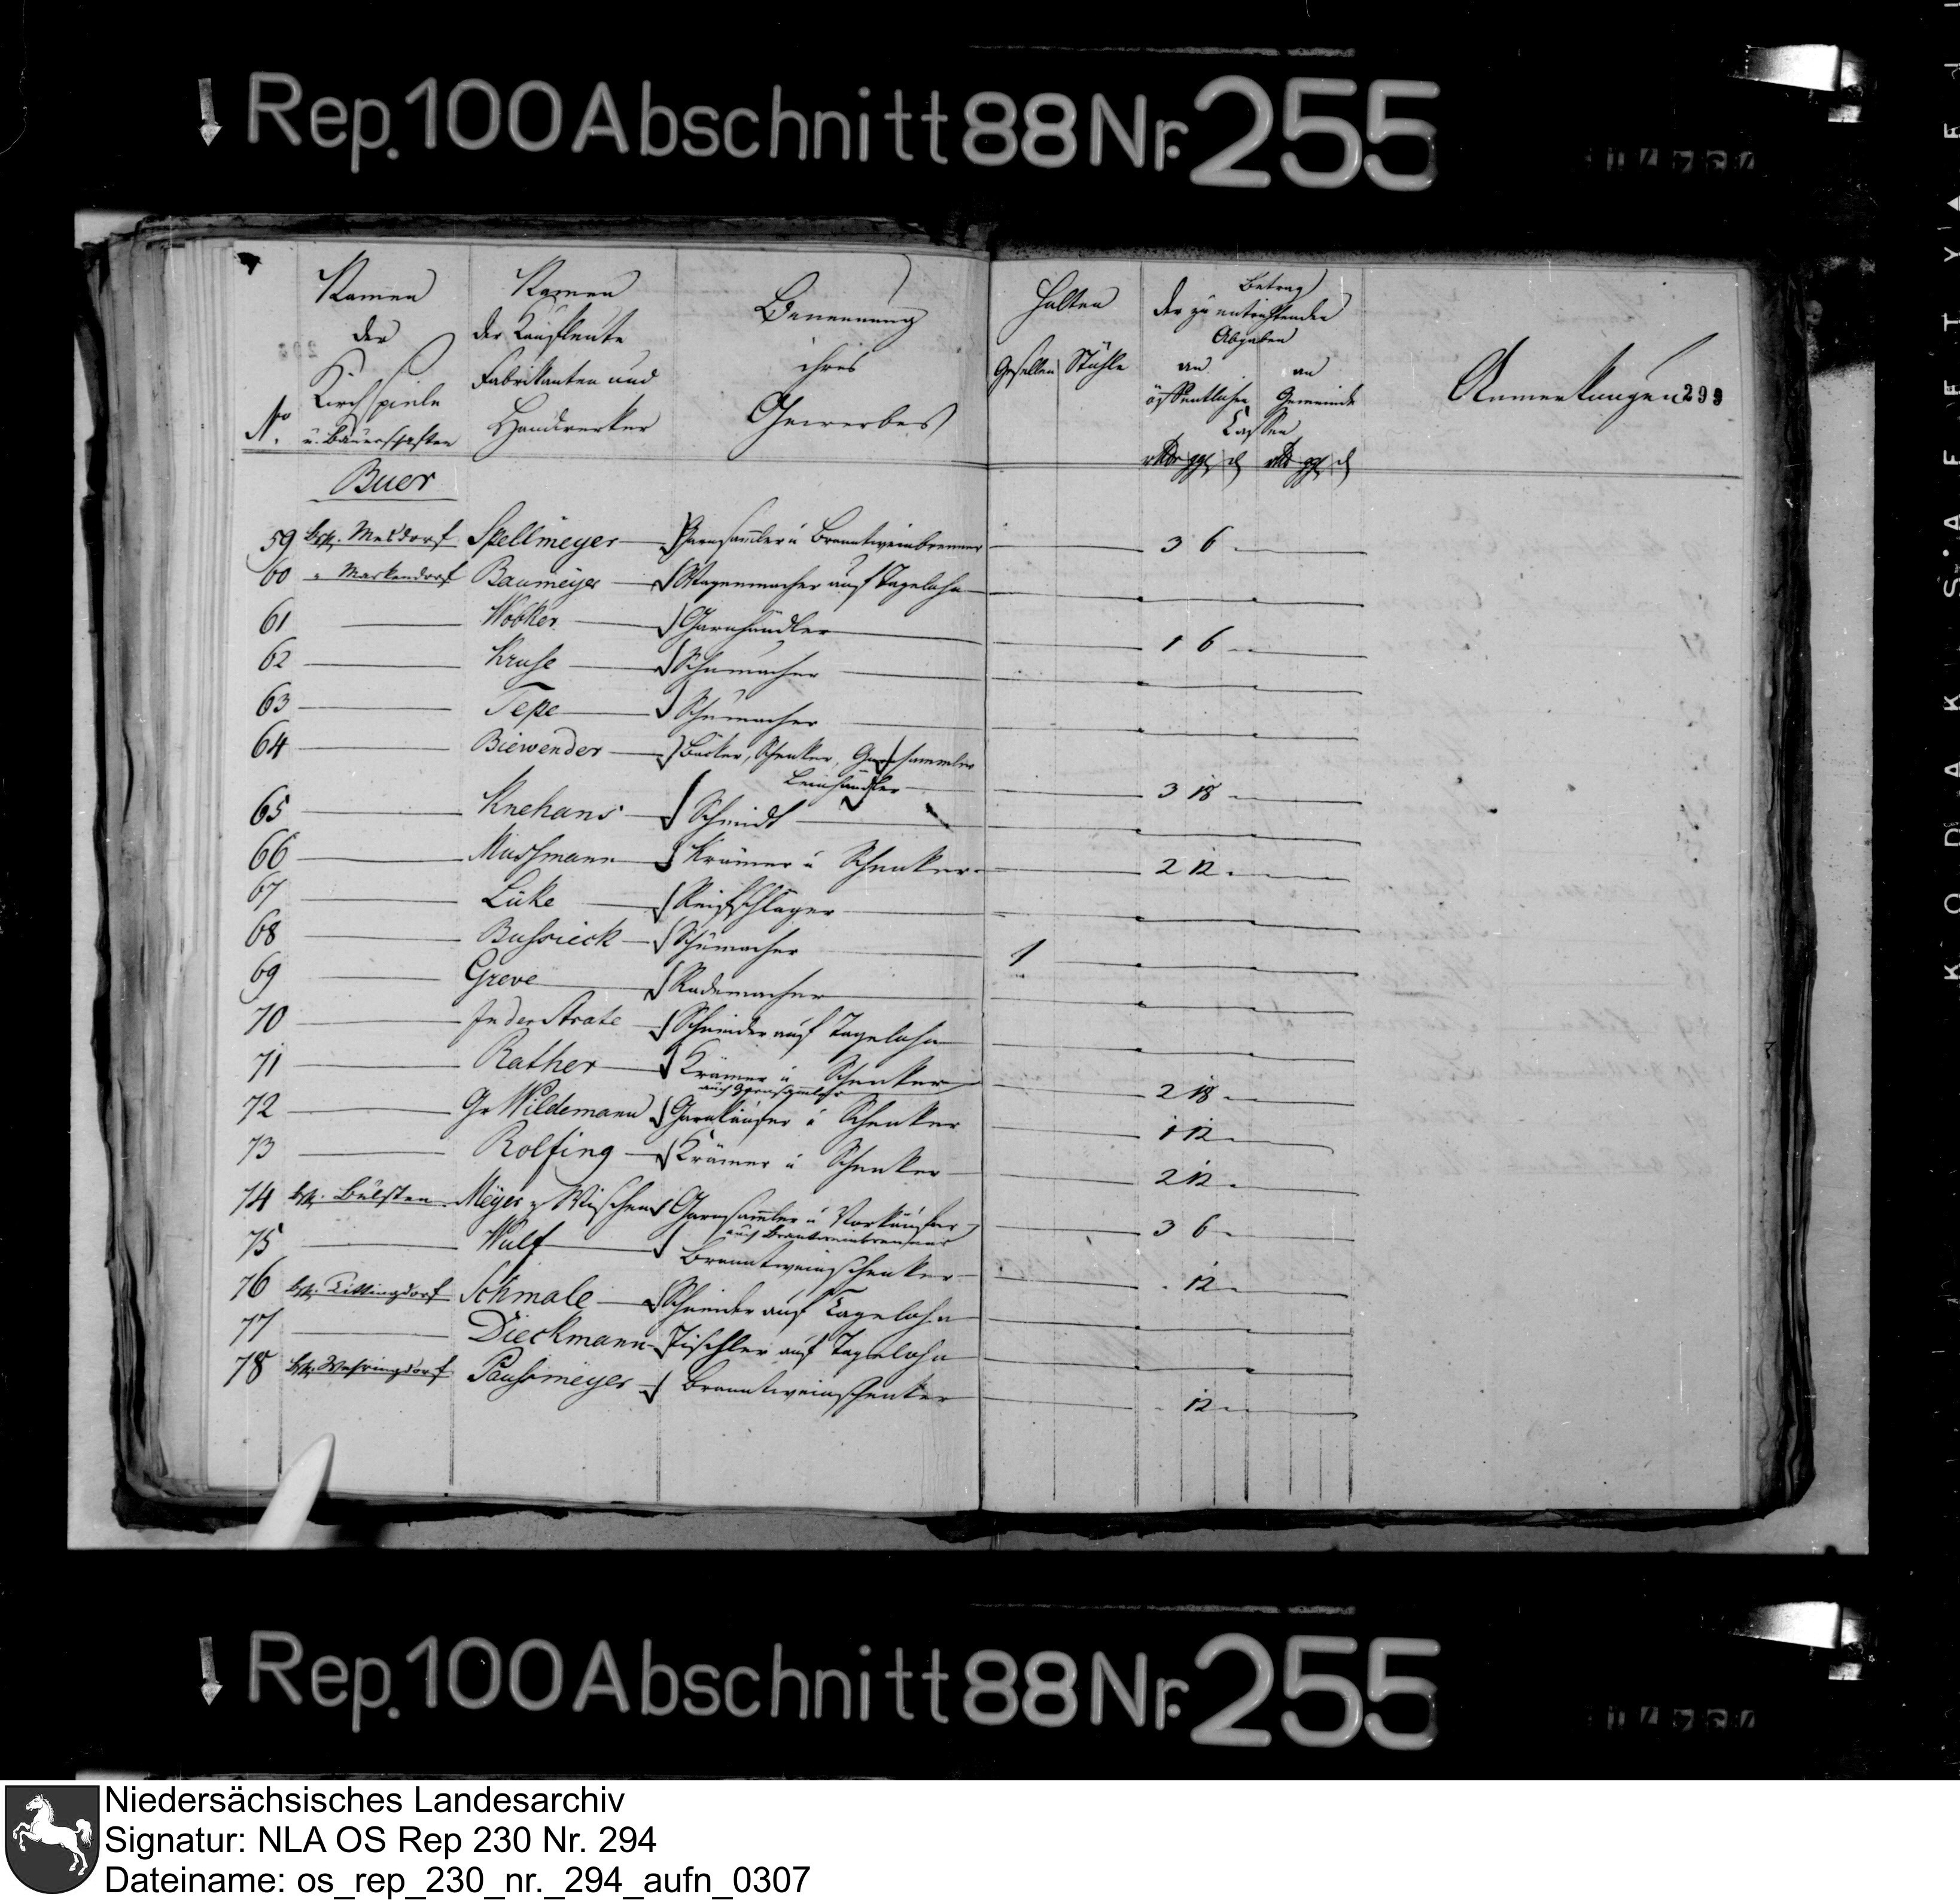 Rep. 100 Abschnitt 88 Nr. 255
No. Namen der Kirchspiele u. Bauerschaften
Namen der Kaufleute Fabrikanten und Handwerker
Benennung ihres Gewerbes
Halten
Gesellen Stühle
Betrag der zu entrichtenden Abgaben
an öffentlichen an Gemeinde
Cassen
Anmerkungen 299
Buer
59 Bsch. Meesdorf Spellmeyer Garnsam̄ler u Branntweinbrenner 3 6 -
60 " Markendorf Baumeyer Wagenmacher auf Tagelohn
61 Wöbker Garnhändler 1 6 -
62 Kruse Schumacher
63 Tepe Schumacher
64 Biewender Bäcker, Schenker, Garnsammler
Leinhändler 3 18 -
65 Knehans Schmidt
66 Mussmann Krämer u Schenker 2 12 -
67 Lüke Reifschläger
68 Bussieck Schumacher 1
69 Greve Rademacher
70 In der Strate Schneider auf Tagelohn
71 Rather Krämer u Schenker
auch Garnsam̄ler 2 18 -
72 Gr Wildemann Garnkäufer u Schenker 1 12 -
73 Rolfing Krämer u Schenker 2 12 -
74 Meyer z Wischen Garnsam̄ler u Vorkäufer
auch Brantweinbrenner 3 6 -
75 Wulf Branntweinschenker - 12 -
76 Schmale Schneider auf Tagelohn
77 Dieckmann Tischler auf Tagelohn
78 Bsch. Wehringdorf Branntweinschenker - 12 -
Rep. 100 Abschnitt 88 Nr. 255
Niedersächsisches Landesarchiv
Signatur: NLA OS Rep 230 Nr. 294
Dateiname: os_rep_230_nr._294_aufn_0307